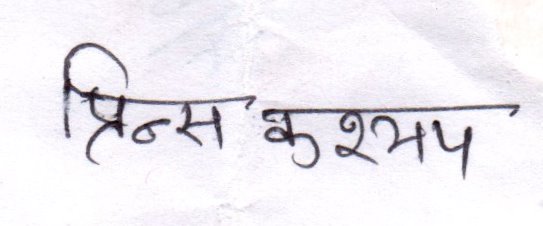 प्रिन्स कश्यप